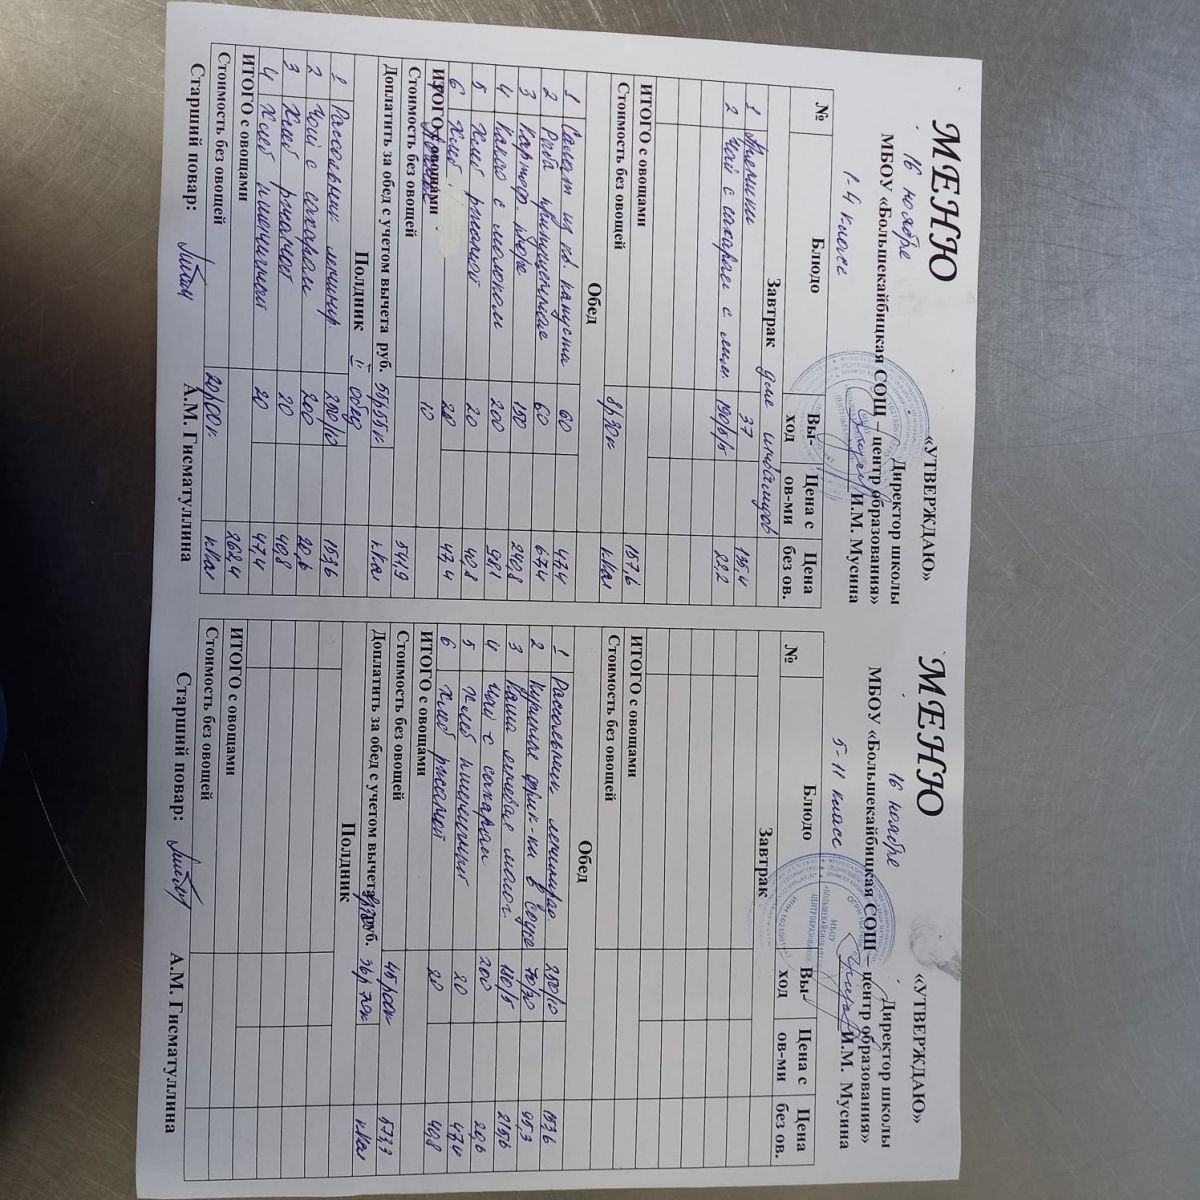 МЕНЮ
«УТВЕРЖДАЮ»
16 ноября
Директор школы
МБОУ «Большекайбицкая СОШ – центр образования»
И.М. Мусина
1-4 класс
№ Блюдо Вы-ход Цена с ов-ми Цена без ов.
Завтрак для инвалидов
1 37 135,4
2 Чай с сахаром с лим. 190/5/5 22,2
ИТОГО с овощами 157,6
Стоимость без овощей 81р30к ккал
Обед
1 Салат из кв. капусты 60 47,4
2 Рыба припущенная 60 67,4
3 Картоф. пюре 150 242,8
4 Какао с молоком 200 98,1
5 Хлеб ржаной 20 40,8
6 Хлеб 20 47,4
ИТОГО с овощами 10
Стоимость без овощей 544,9
Доплатить за обед с учетом вычета руб. ккал
Полдник II обед
1 Рассольник ленингр 250/10 153,6
2 Чай с сахаром 200 20,6
3 Хлеб ржаной 20 40,8
4 Хлеб пшеничный 20 47,4
ИТОГО с овощами 262,4
Стоимость без овощей 20р00к ккал
Старший повар: А.М. Гисматуллина
МЕНЮ
«УТВЕРЖДАЮ»
16 ноября
Директор школы
МБОУ «Большекайбицкая СОШ – центр образования»
И.М. Мусина
5-11 класс
№ Блюдо Вы-ход Цена с ов-ми Цена без ов.
Завтрак
ИТОГО с овощами
Стоимость без овощей
Обед
1 Рассольник ленинград 250/10 153,6
2 Куриная фрик-ка в соусе 70/30 95,3
3 Каша молоч 150/5 215,6
4 Чай с сахаром 200 20,6
5 Хлеб пшеничный 20 47,4
6 Хлеб ржаной 20 40,8
ИТОГО с овощами
Стоимость без овощей 45р00к 573,3
Доплатить за обед с учетом вычета руб. 36р70к ккал
Полдник
ИТОГО с овощами
Стоимость без овощей
Старший повар: А.М. Гисматуллина